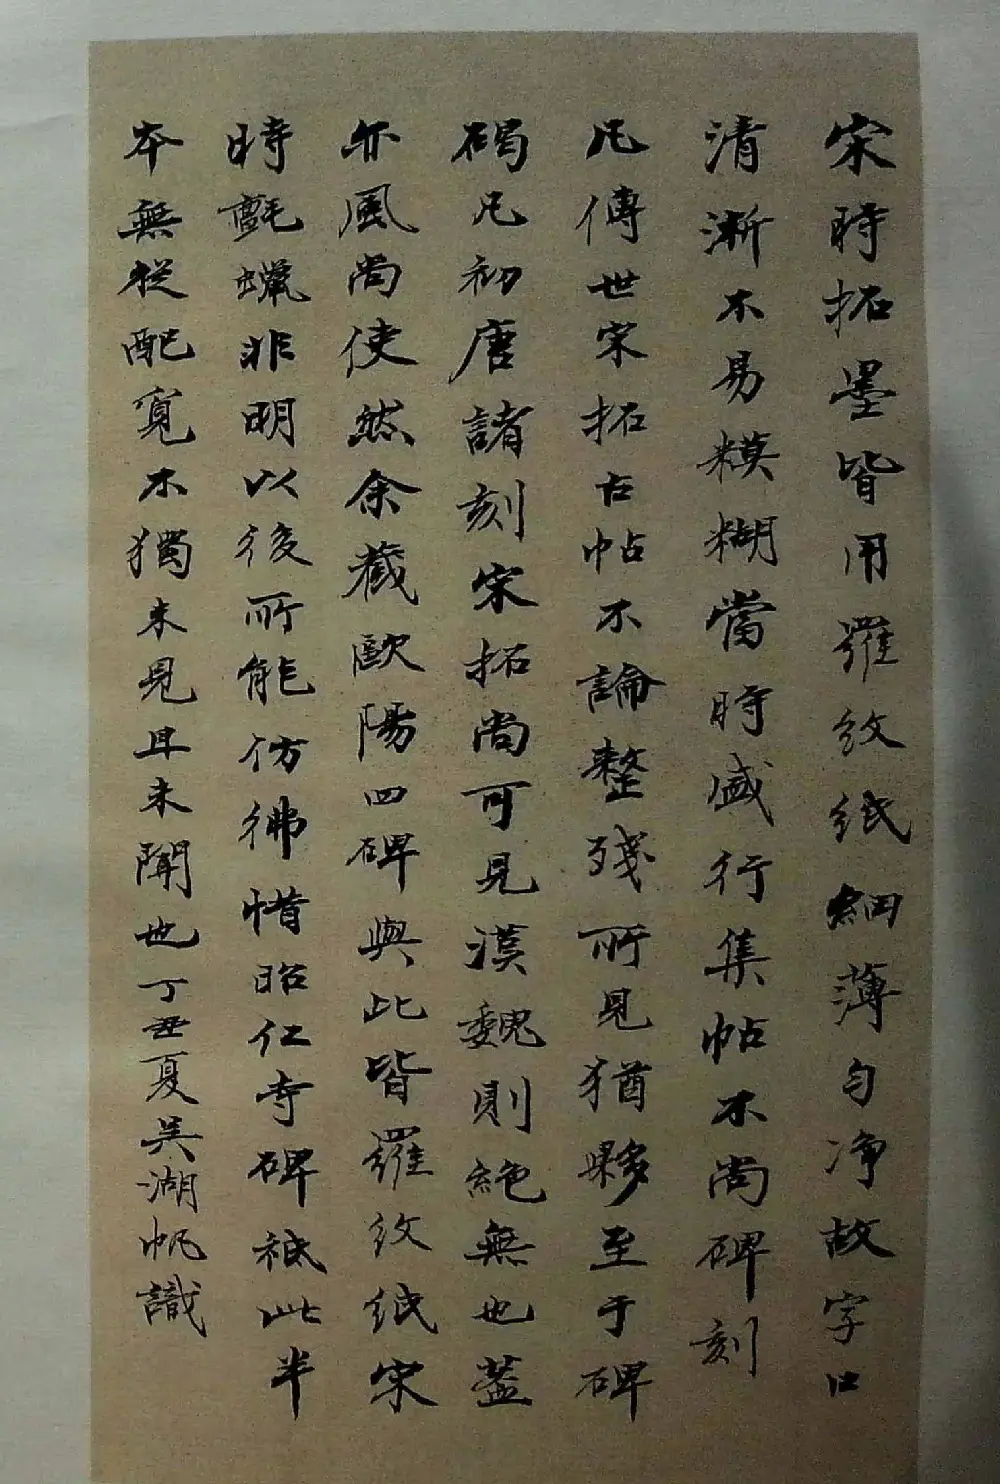 宋時拓墨皆用羅紋紙細薄勻淨故字口
清淅不易糢糊當時盛行集帖不尚碑刻
凡傳世宋拓古帖不論整殘所見猶夥至于碑
碣凡初唐諸刻宋拓尚可見漢魏則絕無也蓋
亦風尚使然余藏歐陽四碑與此皆羅紋紙宋
時氈蠟非明以後所能彷彿惜昭仁寺碑祗此半
本無從配寬不獨未見且未聞也丁丑夏吳湖帆識